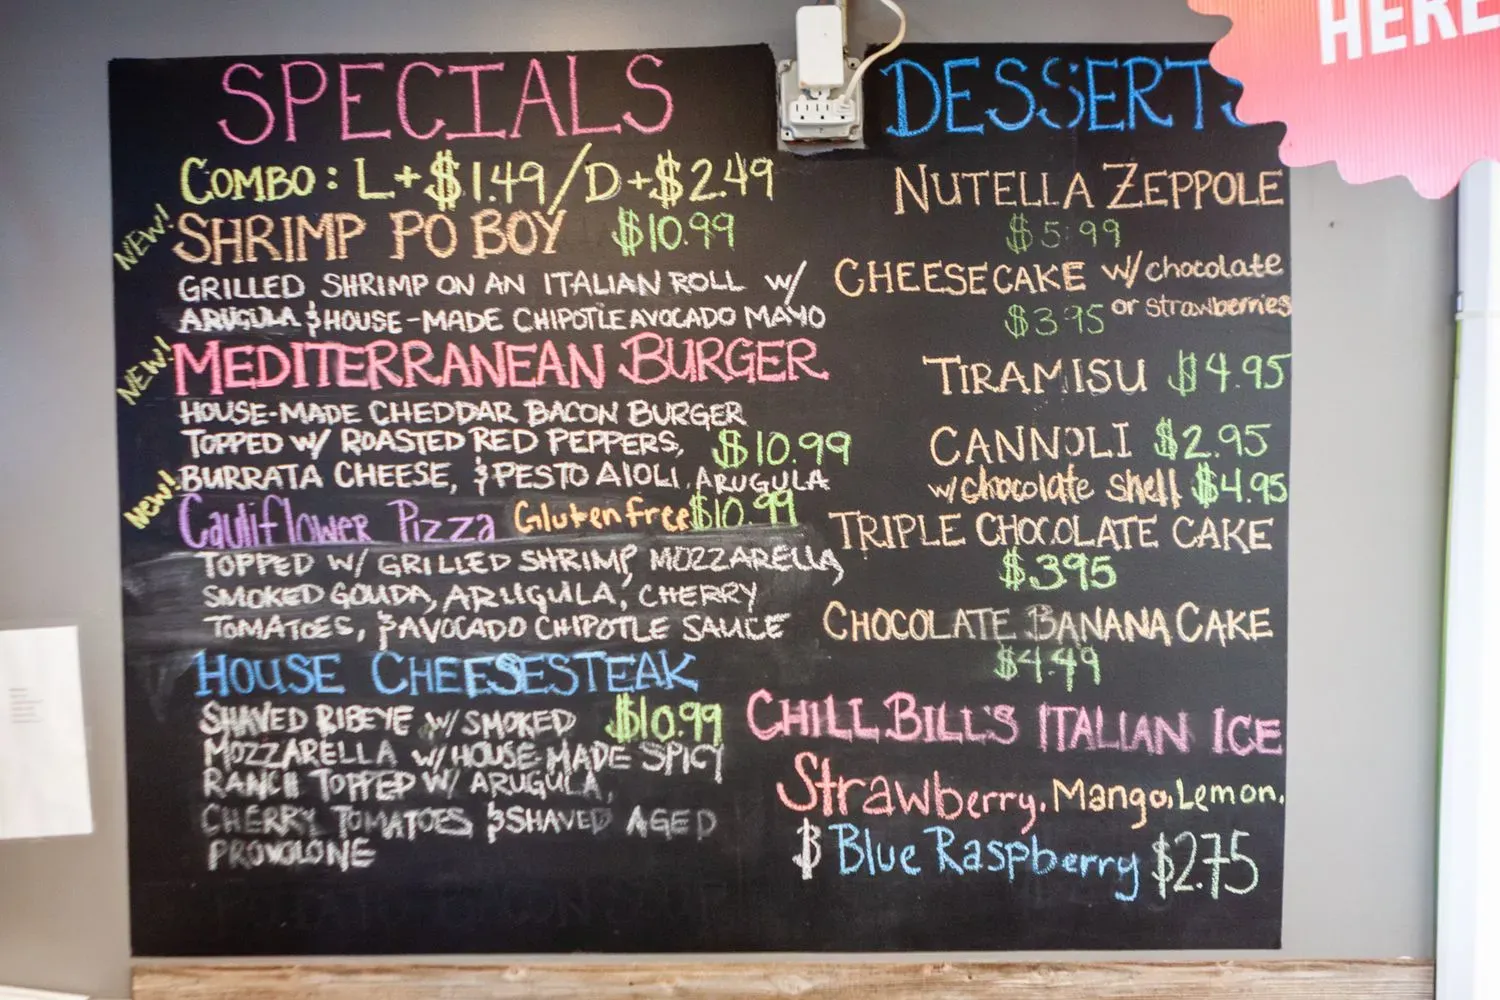 HERE
SPECIALS
COMBO: L+$1.49/D+$2.49
NEW! SHRIMP PO BOY $10.99
GRILLED SHRIMP ON AN ITALIAN ROLL W/
ARUGULA & HOUSE-MADE CHIPOTLE AVOCADO MAYO
NEW! MEDITERRANEAN BURGER
HOUSE-MADE CHEDDAR BACON BURGER
TOPPED W/ ROASTED RED PEPPERS, $10.99
BURRATA CHEESE, & PESTO AIOLI, ARUGULA
New! Cauliflower Pizza Gluten free $10.99
TOPPED W/ GRILLED SHRIMP, MOZZARELLA,
SMOKED GOUDA, ARUGULA, CHERRY
TOMATOES, & AVOCADO CHIPOTLE SAUCE
HOUSE CHEESESTEAK
SHAVED RIBEYE W/ SMOKED $10.99
MOZZARELLA W/ HOUSE MADE SPICY
RANCH TOPPED W/ ARUGULA,
CHERRY TOMATOES & SHAVED AGED
PROVOLONE
DESSERTS
NUTELLA ZEPPOLE
$5.99
CHEESECAKE w/ chocolate
$3.95 or strawberries
TIRAMISU $4.95
CANNOLI $2.95
w/ chocolate shell $4.95
TRIPLE CHOCOLATE CAKE
$395
CHOCOLATE BANANA CAKE
$4.49
CHILL BILL'S ITALIAN ICE
Strawberry, Mango, Lemon,
& Blue Raspberry $2.75